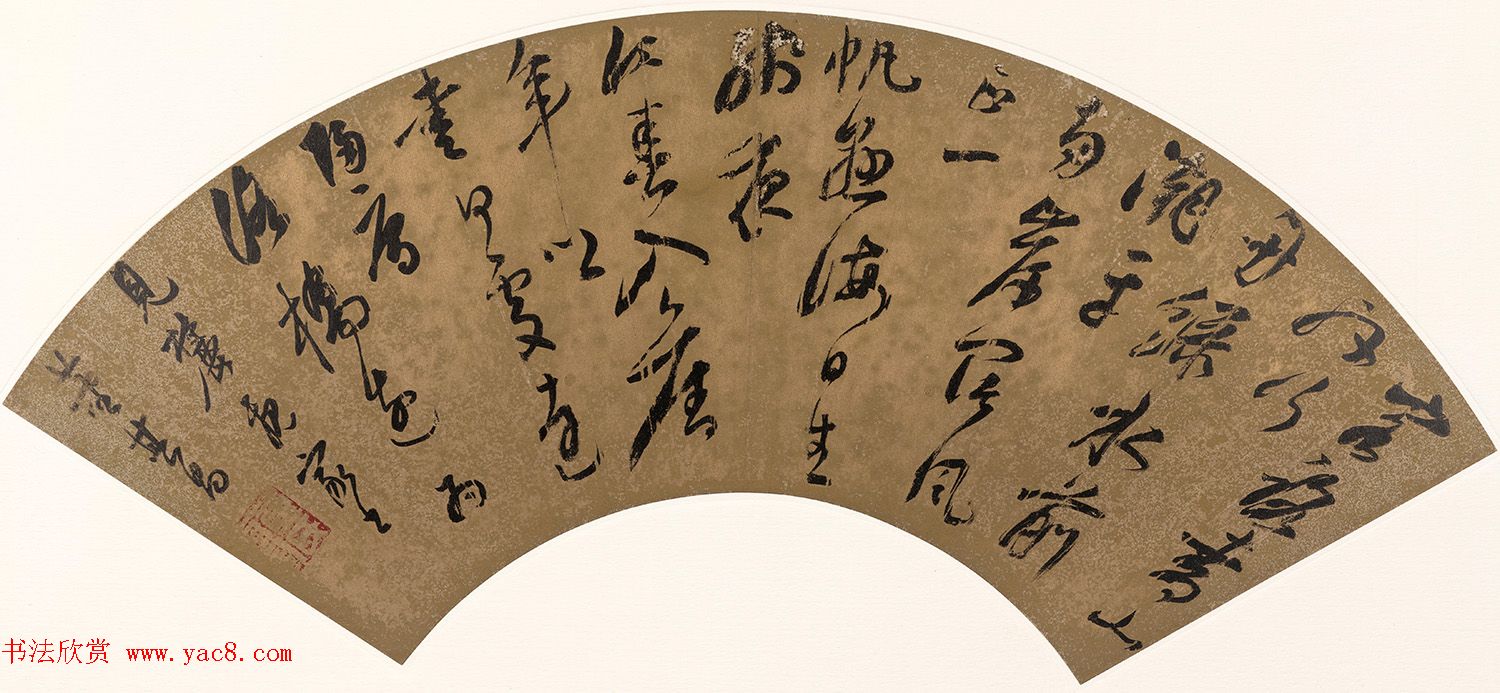 客路青山
外行
舟绿水前
潮平
两岸阔风
正一
帆悬海日生
残夜
江春入旧
年乡
书何处达
归雁
洛桥边
董其昌
书法欣赏 www.yac8.com